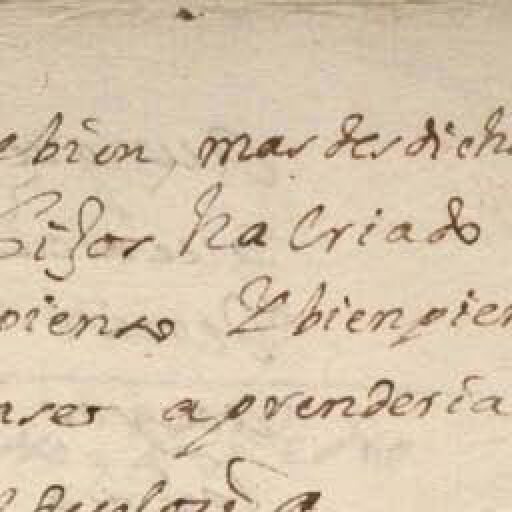 ebien, mas desdich
hijos ha criado
pienso Y bien pien
nses aprenderia